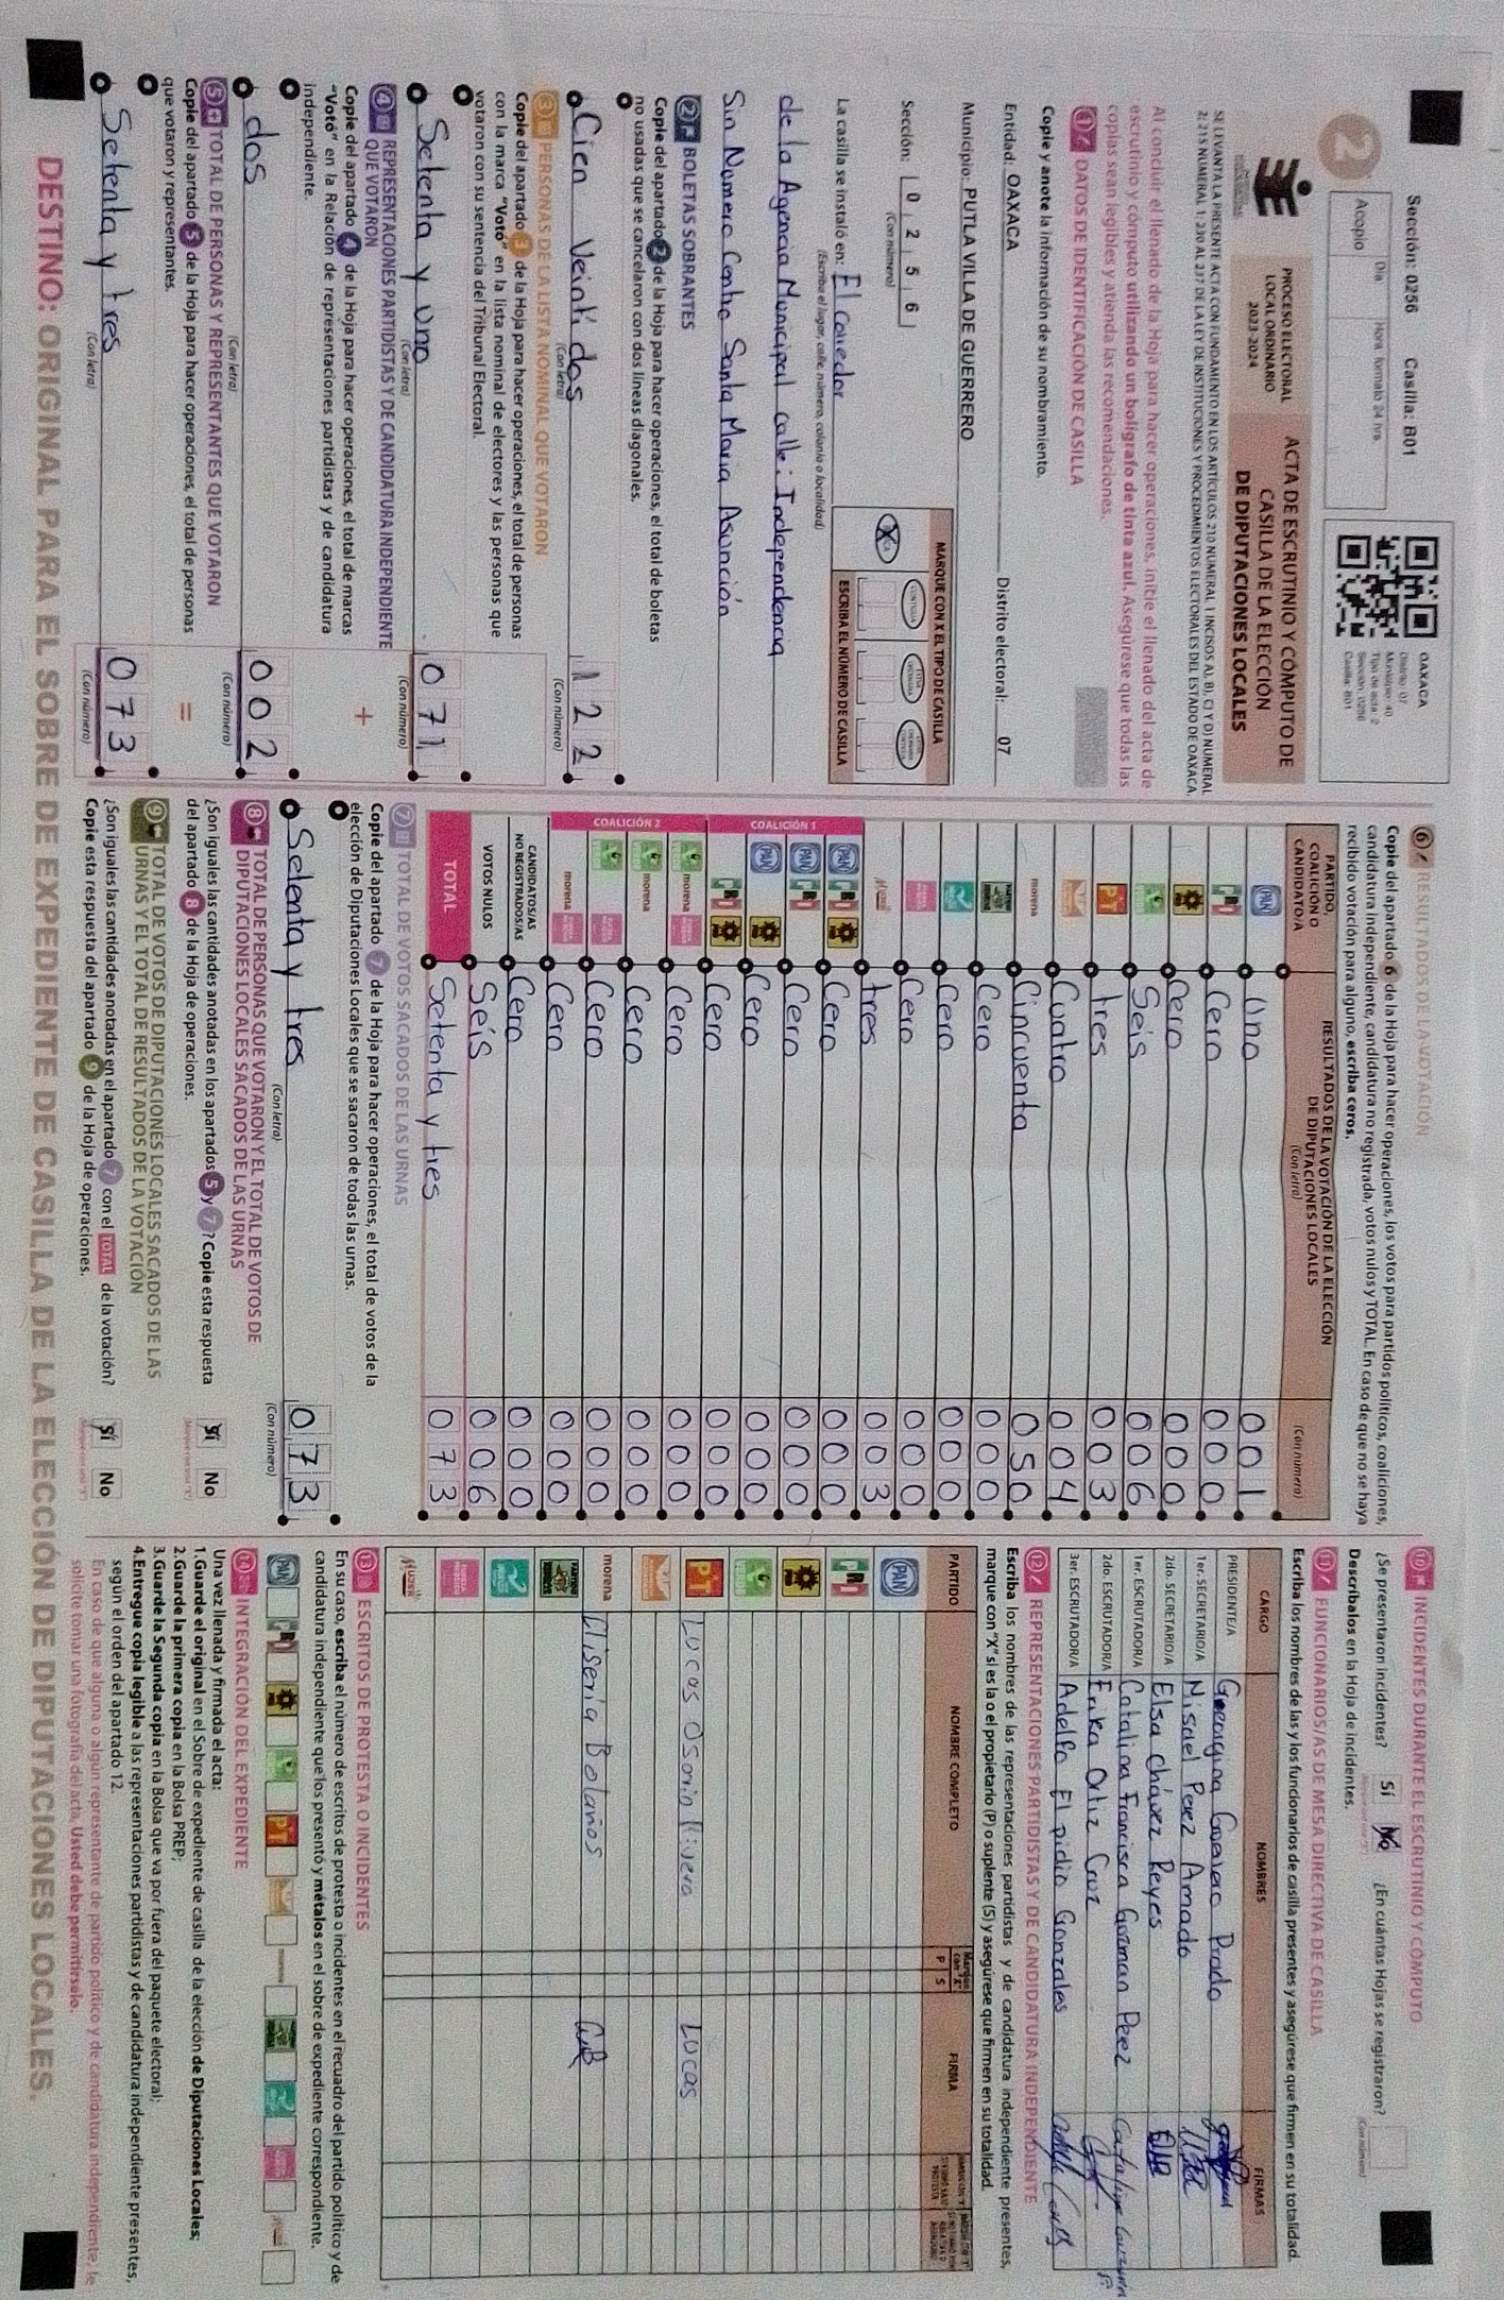 Sección: 0256 Casilla: B01
2
Acopio
Día
Hora formato 24 hrs.
OAXACA
Distrito: 07
Municipio: 40
Tipo de acta: 2
Sección: 0256
Casilla: B01
PROCESO ELECTORAL
LOCAL ORDINARIO
2023-2024
ACTA DE ESCRUTINIO Y CÓMPUTO DE
CASILLA DE LA ELECCIÓN
DE DIPUTACIONES LOCALES
SE LEVANTA LA PRESENTE ACTA CON FUNDAMENTO EN LOS ARTÍCULOS 210 NUMERAL 1 INCISOS A), B), C) Y D) NUMERAL
2; 215 NUMERAL 1; 230 AL 237 DE LA LEY DE INSTITUCIONES Y PROCEDIMIENTOS ELECTORALES DEL ESTADO DE OAXACA.
Al concluir el llenado de la Hoja para hacer operaciones, inicie el llenado del acta de
escrutinio y cómputo utilizando un bolígrafo de tinta azul. Asegúrese que todas las
copias sean legibles y atienda las recomendaciones.
1 DATOS DE IDENTIFICACIÓN DE CASILLA
Copie y anote la información de su nombramiento.
Entidad: OAXACA Distrito electoral: 07
Municipio: PUTLA VILLA DE GUERRERO
Sección: 0 2 5 6
(Con número)
MARQUE CON X EL TIPO DE CASILLA
ESCRIBA EL NÚMERO DE CASILLA
La casilla se instaló en: El Corredor
(Escriba el lugar, calle, número, colonia o localidad)
de la Agencia Municipal calle: Independencia
Sin Numero Centro Santa Maria Asunción
2 BOLETAS SOBRANTES
Copie del apartado 2 de la Hoja para hacer operaciones, el total de boletas
no usadas que se cancelaron con dos líneas diagonales.
Cien Veintidos 1 2 2
(Con letra) (Con número)
3 PERSONAS DE LA LISTA NOMINAL QUE VOTARON
Copie del apartado 3 de la Hoja para hacer operaciones, el total de personas
con la marca "Votó" en la lista nominal de electores y las personas que
votaron con su sentencia del Tribunal Electoral.
Setenta y Uno 0 7 1
(Con letra) (Con número)
4 REPRESENTACIONES PARTIDISTAS Y DE CANDIDATURA INDEPENDIENTE
QUE VOTARON
Copie del apartado 4 de la Hoja para hacer operaciones, el total de marcas
"Votó" en la Relación de representaciones partidistas y de candidatura
independiente.
+
dos 0 0 2
(Con letra) (Con número)
5 TOTAL DE PERSONAS Y REPRESENTANTES QUE VOTARON
Copie del apartado 5 de la Hoja para hacer operaciones, el total de personas
que votaron y representantes.
=
Setenta y tres 0 7 3
(Con letra) (Con número)
6 RESULTADOS DE LA VOTACIÓN
Copie del apartado 6 de la Hoja para hacer operaciones, los votos para partidos políticos, coaliciones,
candidatura independiente, candidatura no registrada, votos nulos y TOTAL. En caso de que no se haya
recibido votación para alguno, escriba ceros.
PARTIDO,
COALICIÓN O
CANDIDATO/A
RESULTADOS DE LA VOTACIÓN DE LA ELECCIÓN
DE DIPUTACIONES LOCALES
(Con letra) (Con número)
PAN Uno 0 0 1
PRI Cero 0 0 0
PRD Cero 0 0 0
Seis 0 0 6
PT tres 0 0 3
Cuatro 0 0 4
morena Cincuenta 0 5 0
Cero 0 0 0
Cero 0 0 0
Cero 0 0 0
MUJER tres 0 0 3
COALICIÓN 1
PAN PRI PRD Cero 0 0 0
PAN PRI Cero 0 0 0
PAN PRD Cero 0 0 0
PRI PRD Cero 0 0 0
COALICIÓN 2
morena Cero 0 0 0
morena Cero 0 0 0
Cero 0 0 0
morena Cero 0 0 0
CANDIDATOS/AS
NO REGISTRADOS/AS Cero 0 0 0
VOTOS NULOS Seis 0 0 6
TOTAL Setenta y tres 0 7 3
7 TOTAL DE VOTOS SACADOS DE LAS URNAS
Copie del apartado 7 de la Hoja para hacer operaciones, el total de votos de la
elección de Diputaciones Locales que se sacaron de todas las urnas.
Setenta y tres 0 7 3
(Con letra) (Con número)
8 TOTAL DE PERSONAS QUE VOTARON Y EL TOTAL DE VOTOS DE
DIPUTACIONES LOCALES SACADOS DE LAS URNAS
¿Son iguales las cantidades anotadas en los apartados 5 y 7? Copie esta respuesta
del apartado 8 de la Hoja de operaciones.
Sí No
9 TOTAL DE VOTOS DE DIPUTACIONES LOCALES SACADOS DE LAS
URNAS Y EL TOTAL DE RESULTADOS DE LA VOTACIÓN
¿Son iguales las cantidades anotadas en el apartado 7 con el TOTAL de la votación?
Copie esta respuesta del apartado 9 de la Hoja de operaciones.
Sí No
10 INCIDENTES DURANTE EL ESCRUTINIO Y CÓMPUTO
¿Se presentaron incidentes? Sí No ¿En cuántas Hojas se registraron?
(Con número)
Descríbalos en la Hoja de incidentes.
11 FUNCIONARIOS/AS DE MESA DIRECTIVA DE CASILLA
Escriba los nombres de las y los funcionarios de casilla presentes y asegúrese que firmen en su totalidad.
CARGO NOMBRES FIRMAS
PRESIDENTE/A Georgina Guerrero Prado
1er. SECRETARIO/A Misael Perez Amado
2do. SECRETARIO/A Elsa Chávez Reyes
1er. ESCRUTADOR/A Catalina Francisca Guzman Perez
2do. ESCRUTADOR/A Erika Ortiz Cruz
3er. ESCRUTADOR/A Adelfo Elpidio Gonzales
12 REPRESENTACIONES PARTIDISTAS Y DE CANDIDATURA INDEPENDIENTE
Escriba los nombres de las representaciones partidistas y de candidatura independiente presentes,
marque con "X" si es la o el propietario (P) o suplente (S) y asegúrese que firmen en su totalidad.
PARTIDO NOMBRE COMPLETO P S FIRMA
PAN
PRI
PRD
PT Lucas Osorio Rivera Lucas
morena Eliseria Bolaños
MUJER
13 ESCRITOS DE PROTESTA O INCIDENTES
En su caso, escriba el número de escritos de protesta o incidentes en el recuadro del partido político y de
candidatura independiente que los presentó y métalos en el sobre de expediente correspondiente.
PAN PRI PRD PT morena
14 INTEGRACIÓN DEL EXPEDIENTE
Una vez llenada y firmada el acta:
1.Guarde el original en el Sobre de expediente de casilla de la elección de Diputaciones Locales;
2.Guarde la primera copia en la Bolsa PREP;
3.Guarde la Segunda copia en la Bolsa que va por fuera del paquete electoral;
4.Entregue copia legible a las representaciones partidistas y de candidatura independiente presentes,
según el orden del apartado 12.
En caso de que alguna o algún representante de partido político y de candidatura independiente, le
solicite tomar una fotografía del acta, Usted debe permitírselo.
DESTINO: ORIGINAL PARA EL SOBRE DE EXPEDIENTE DE CASILLA DE LA ELECCIÓN DE DIPUTACIONES LOCALES.